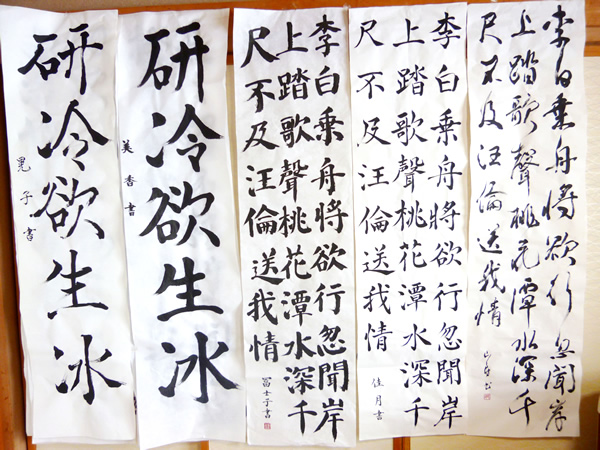 李白乗舟将欲行忽聞岸
上踏歌聲桃花潭水深千
尺不及汪倫送我情
李白乗舟將欲行忽聞岸
上踏歌聲桃花潭水深千
尺不及汪倫送我情
佳月書
李白乗舟將欲行忽聞岸
上踏歌聲桃花潭水深千
尺不及汪倫送我情
冨士子書
研冷欲生冰
美香書
研冷欲生冰
晃子書